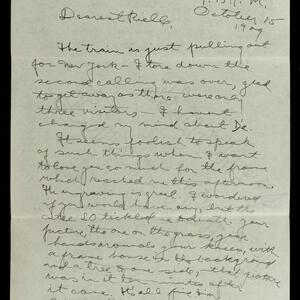 October 15
Dearest
The train is just pulling out
for New York - I tore down the
second calling was over, glad
to get away as there were only
three visitors - I haven't
changed my mind about
It seems foolish to speak
of such things when I want
to for the frame
which reached me this afternoon.
The engraving is great. I wondered
if you would have any, but the
tickled me to death. Your
picture, the one on the grass, your
hands around your knees, with
a frame house in the background
and a tree to one side, that picture
was in it ten minutes after
it came. It's all fixing